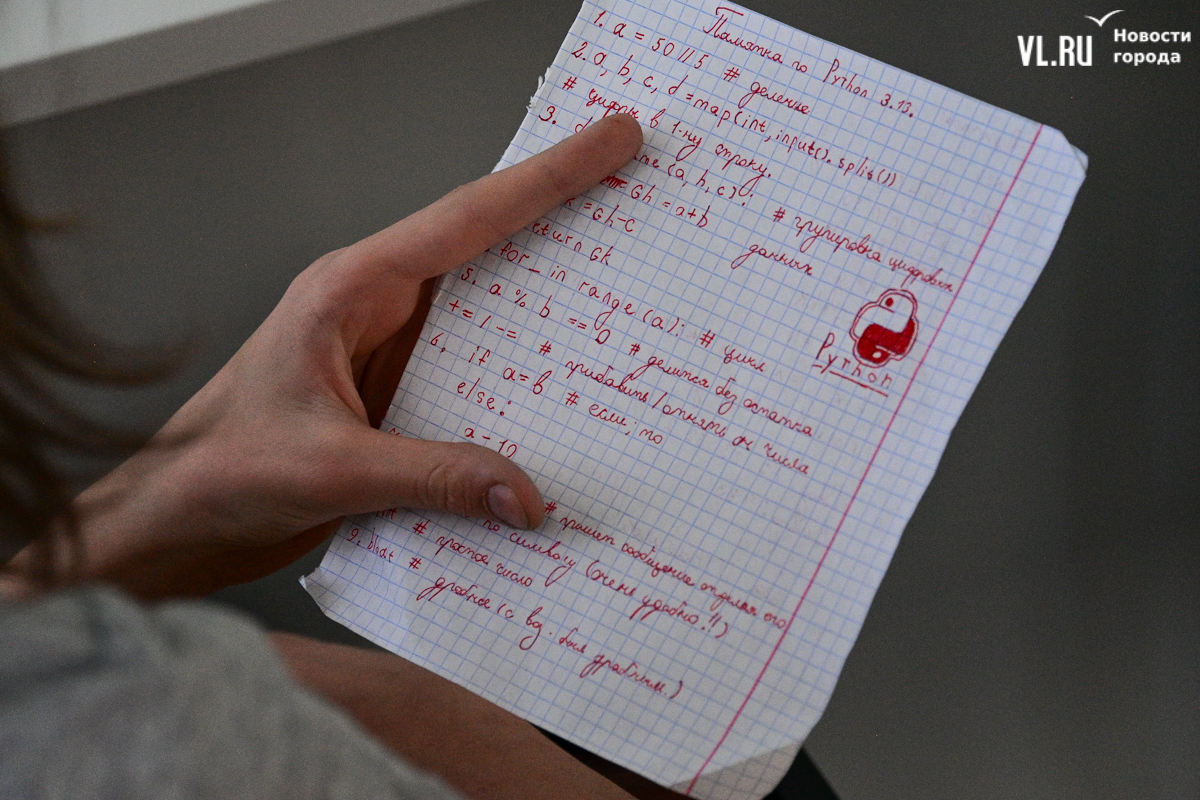 VL.RU Новости города
Памятка по Python 3.13.
1. a = 50 // 5 # деление
2. a, b, c, d = map(int, input().split())
# цифры в 1-ну строку.
3. d me (a, b, c): # групировка цифровых
Gh = a+b данных
k = Gh-c
eturn Gk
for _ in range (a): # цикл
5. a % b == 0 # делится без остатка
+= / -= # прибавить / отнять от числа
6. if a=b # если; то
else:
a - 10
# пришет сообщение отделяя его
по символу (очень удобно!!)
int # простое число
9. bloat # дробное (с вод. был дробным.)
Python